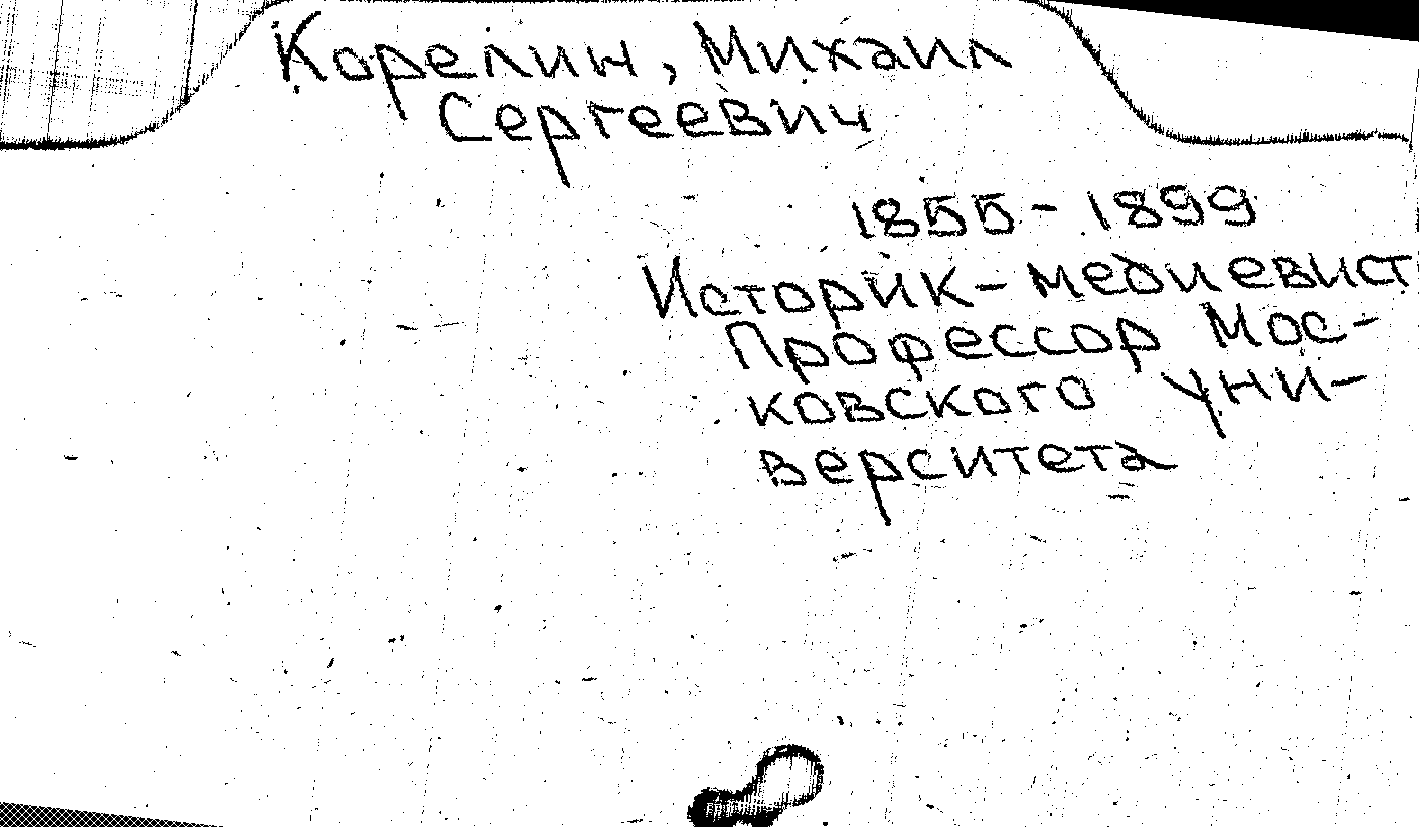 Корелин, Михаил
Сергеевич
1855-1899
Историк-медиевист
Профессор Мос-
ковского уни-
верситета